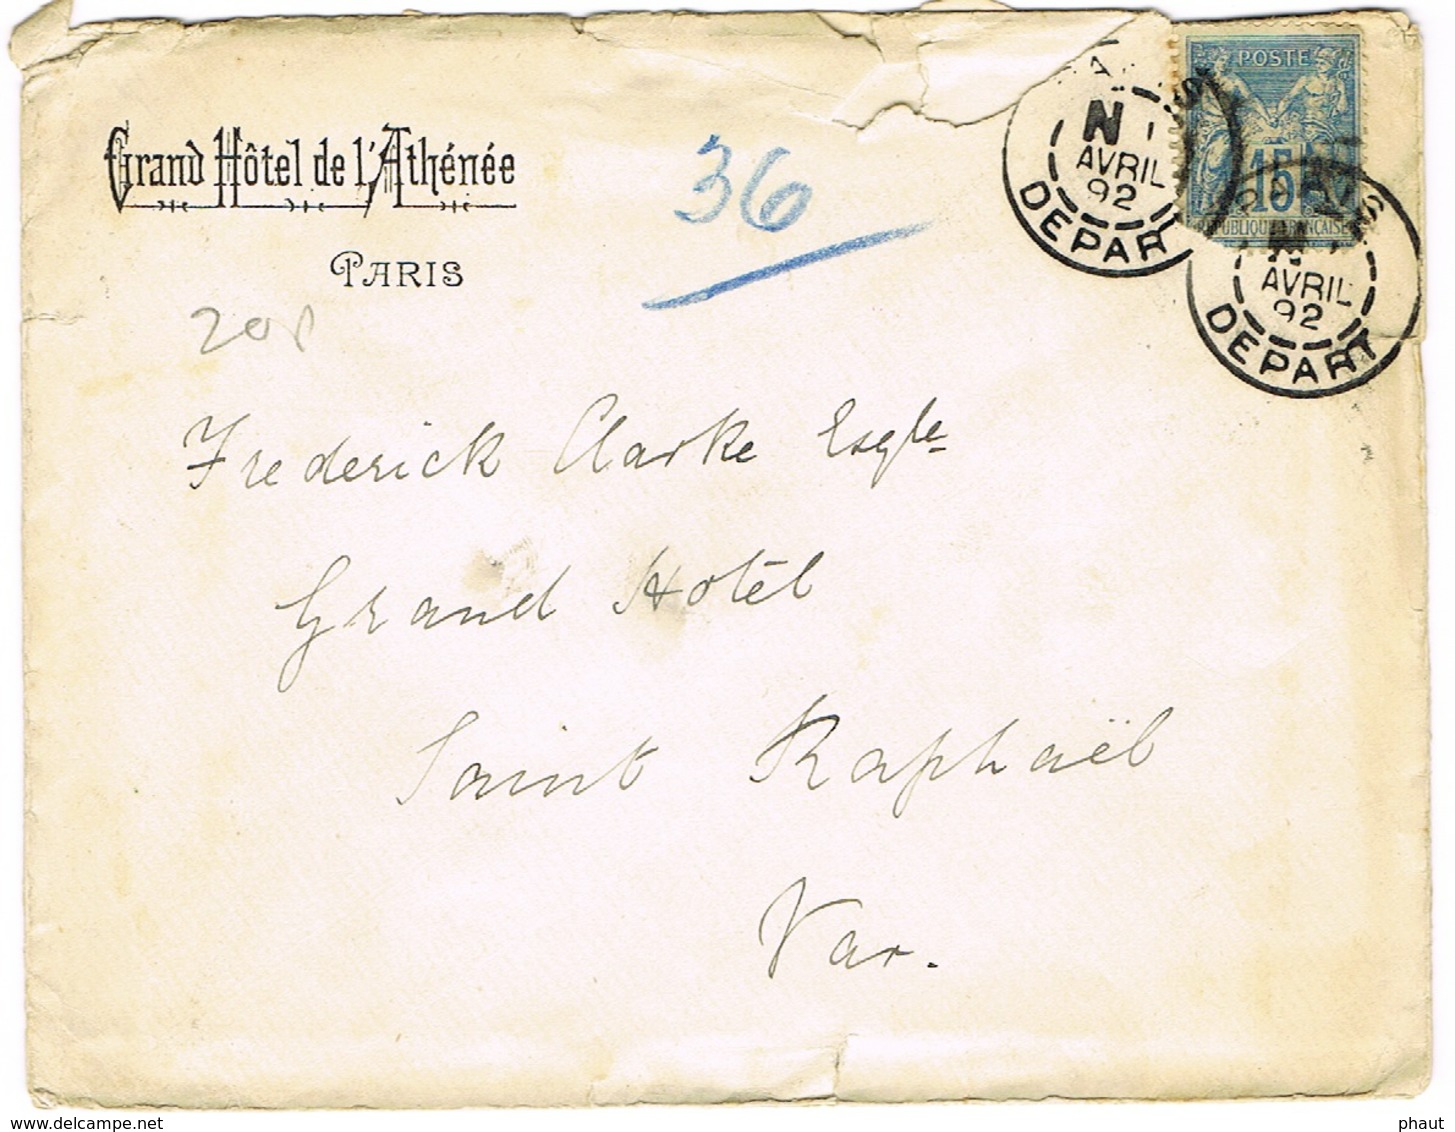 Grand Hôtel de l'Athénée
PARIS
36
PARIS
AVRIL
92
DEPART
POSTE
15
REPUBLIQUE FRANÇAISE
PARIS
AVRIL
92
DEPART
Frederick Clarke Esqre
Grand Hotel
Saint Raphaël
Var.
www.delcampe.net
phaut